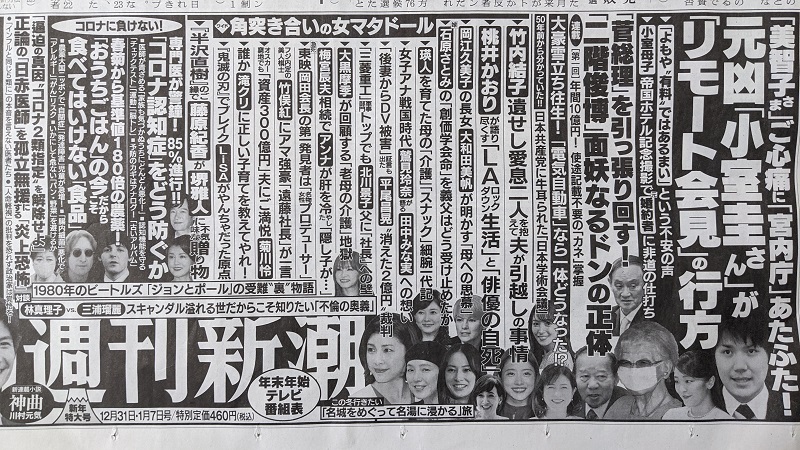 「美智子さま」ご心痛に「宮内庁」あたふた!
元凶「小室圭さん」が
「リモート会見」の行方
▼「よもや“再科”ではあるまい」という不安の声
▼小室母子「帝国ホテル記念撮影」で“婚約者”に非道の仕打ち
「菅総理」を引っ張り回す!
「二階俊博」面妖なるドンの正体
連載【第一回】年間10億円!使途記載不要の「カネ」掌握
50年前から分かっていた!!日本共産党に牛耳られた「日本学術会議」
大豪雪立ち往生!「電気自動車」なら一体どうなった!?
「竹内結子」遺せし愛息二人を抱え夫が引越しの事情
「桃井かおり」が語り尽くす「LAロックダウン生活」と「俳優の自死」
「岡江久美子」の長女「大和田美帆」が明かす「母への思慕」
「石原さとみ」の「創価学会命」を義父はどう受け止めたか
瑛人を育てた母の「介護」「スナック」細腕一代記
女子アナ戦国時代「鷲見玲奈」が語る「田中みな実」への想い
後妻からDV被害「平尾昌晃」消えた「2億円」裁判
「三菱重工」トップでも「北川景子」父に「社長」への壁
「大黒摩季」が回顧する「老母の介護」地獄
「梅宮辰夫」相続で「アンナ」が肝を冷やす「隠し子が…」
東映「岡田会長」急死の第一発見者は「美魔女プロデューサー」
「竹俣紅」にフジ強豪「遠藤社長」が一言
オスカー「資産300億円」夫にご満悦「菊川怜」
誰か「滝クリ」に正しい子育てを教えてやれ!
「鬼滅の刃」でブレイク「LiSA」がやんちゃだった原点
「半沢直樹」の縁で「藤原紀香」が「堺雅人」に不思議な贈り物
ワイド 角突き合いの女マタドール
コロナに負けない!
専門医が警鐘!85%進行!!
「コロナ認知症」をどう防ぐか
春菊から基準値180倍の農薬!
おうちごはんの今だこそ
食べてはいけない「食品」
逼迫の真因“コロナ2類指定”を解除せよ!
正論の「日赤医師」を孤立無援にする「炎上恐怖」
1980年のビートルズ「ジョンとポール」の受難“裏”物語
対談
林真理子 vs. 三浦瑠麗 スキャンダル溢れる世だからこそ知りたい「不倫の奥義」
週刊新潮
新連載小説
神曲
川村元気
新年特大号
12月31日・1月7日号/特別定価460円(税込)
年末年始
テレビ
番組表
この冬行きたい
「名城をめぐって名湯に浸かる」旅